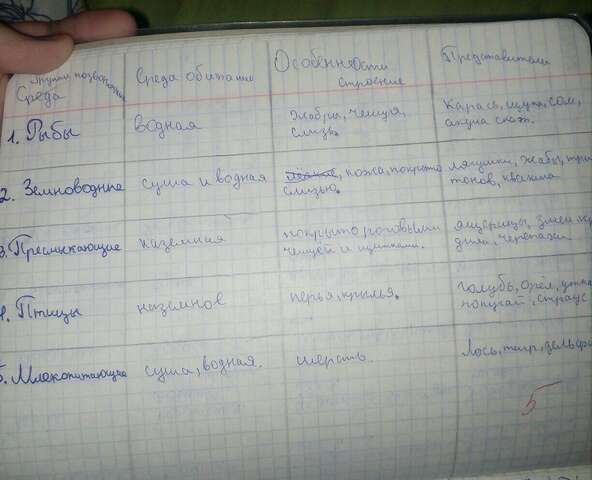 Группы позвоночных
Среда
Среда обитания
Особенности
строение
Представители
1. Рыбы
водная
Жабры, чешуя,
слизь.
Карась, щука, сом,
акула скат.
2. Земноводные
суша и водная
кожа, покрыта
слизью.
лягушки, жабы, три
тонов, квакша
3. Пресмыкающие
наземная
покрыто роговыми
чешуей и щитками.
ящерицы, змеи
дила, черепахи
4. Птицы
наземное
перья, крылья.
голубь, орёл, утка
попугай, страус
5. Млекопитающие
суша, водная.
шерсть.
Лось, тигр, дельфин
5